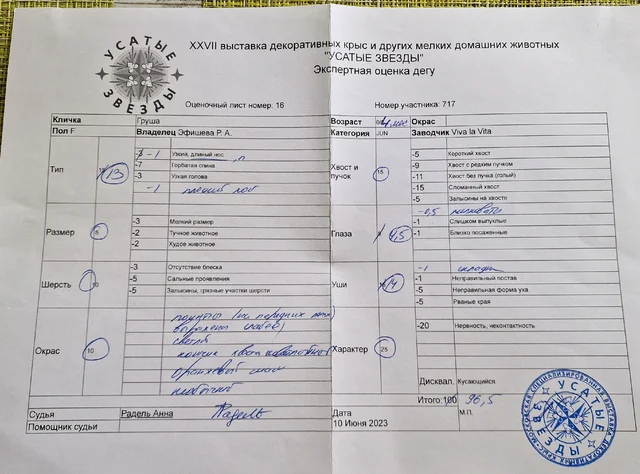 УСАТЫЕ ЗВЕЗДЫ
XXVII выставка декоративных крыс и других мелких домашних животных
"УСАТЫЕ ЗВЕЗДЫ"
Экспертная оценка дегу
Оценочный лист номер: 16
Номер участника: 717
Кличка Груша Возраст 4 мес Окрас
Пол F Владелец Эфишева Р. А. Категория JUN Заводчик Viva la Vita
Тип 13
-1 Узкий, длинный нос
-7 Горбатая спина
-3 Узкая голова
-1
Хвост и пучок 15
-5 Короткий хвост
-9 Хвост с редким пучком
-11 Хвост без пучка (голый)
-15 Сломанный хвост
-5 Залысины на хвосте
Размер 5
-3 Мелкий размер
-2 Тучное животное
-2 Худое животное
Глаза 4,5
-0,5
Слишком выпуклые
-1 Близко посаженные
Шерсть 10
-3 Отсутствие блеска
-5 Сальные проявления
-5 Залысины, грязные участки шерсти
Уши 14
-1 складки
-1 Неправильный постав
-5 Неправильная форма уха
-5 Рваные края
Окрас 10
светла
Характер 25
-20 Нервность, неконтактность
Дисквал. Кусающийся
Итого: 100 96,5
Судья Радель Анна Радель Дата М.П.
Помощник судьи 10 Июня 2023
МОСКОВСКАЯ СПЕЦИАЛИЗИРОВАННАЯ ВЫСТАВКА ДЕКОРАТИВНЫХ КРЫС
УСАТЫЕ ЗВЕЗДЫ